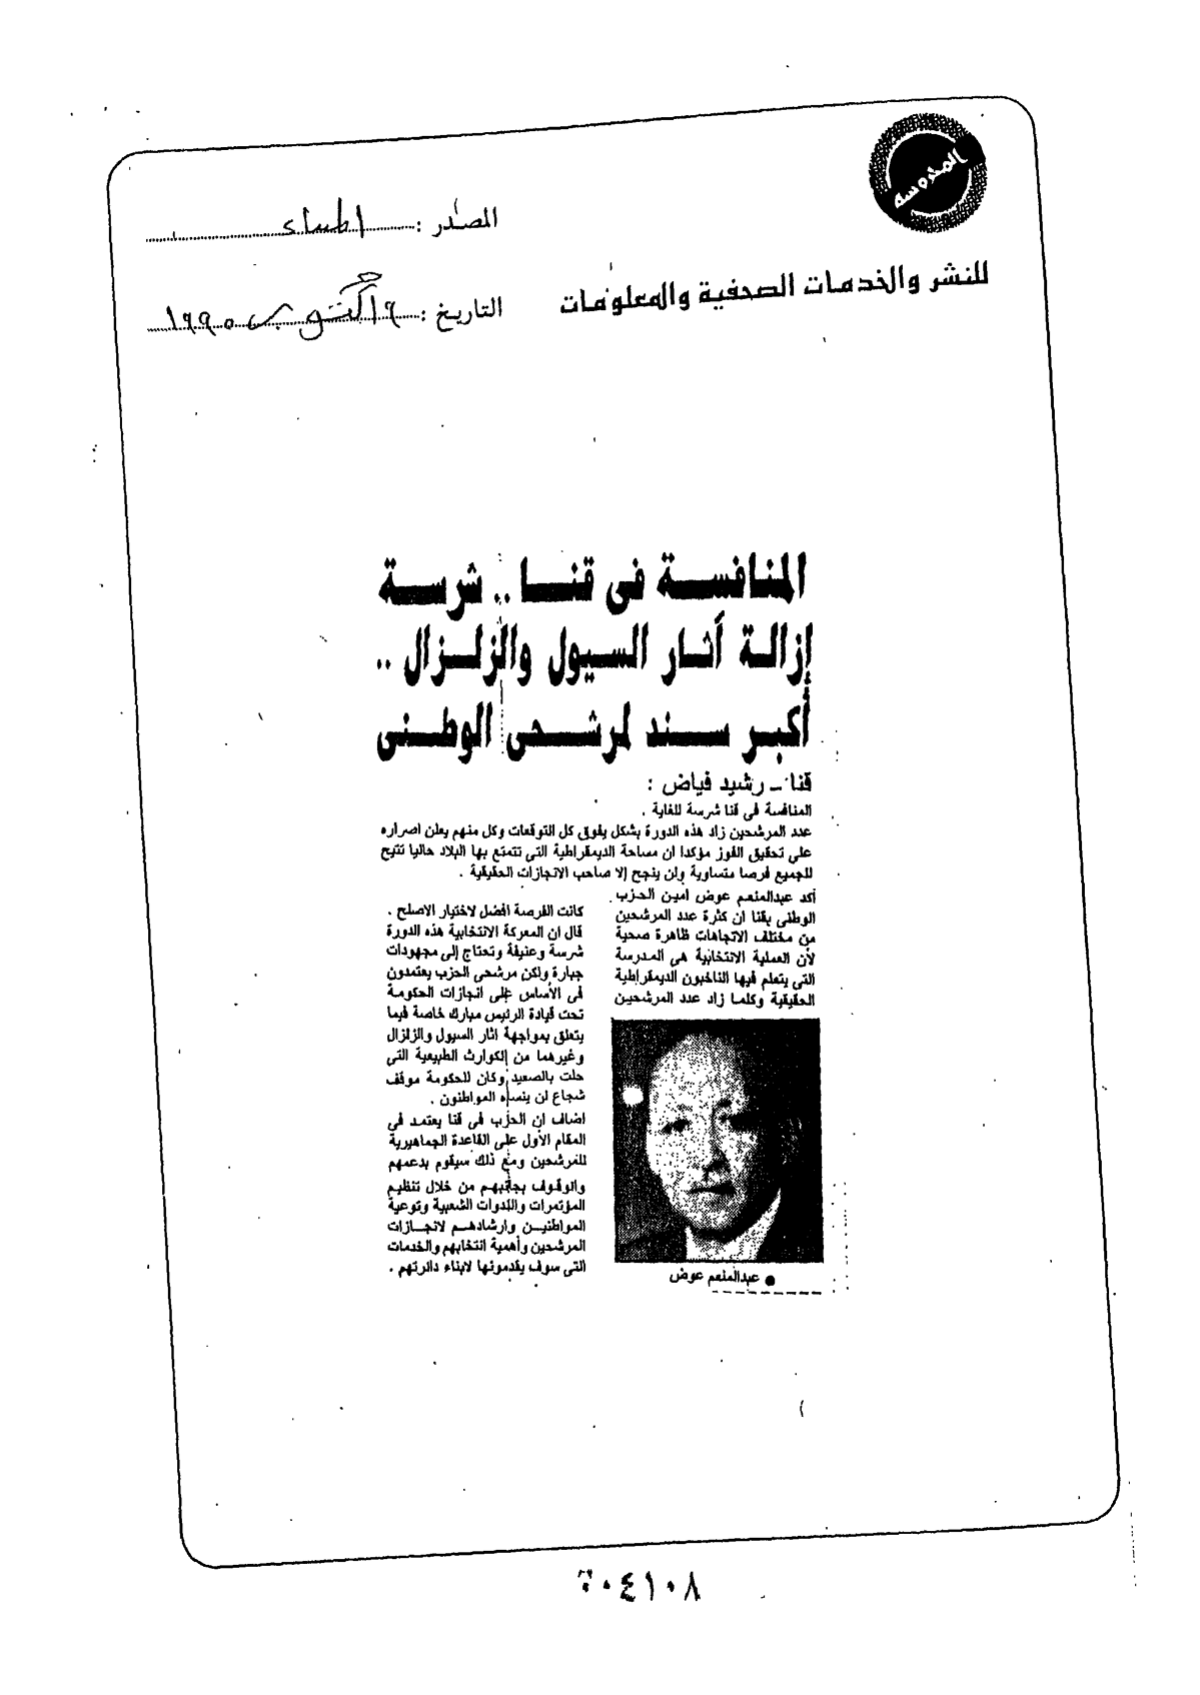 المحروسه
للنشر والخدمات الصحفية والمعلومات
المصدر : المساء
التاريخ : اكتوبر ١٩٩٥
المنافسة فى قنا .. شرسة
إزالة آثار السيول والزلزال ..
أكبر سند لمرشحى الوطنى
قنا ـ رشيد فياض :
المنافسة فى قنا شرسة للغاية .
عدد المرشحين زاد هذه الدورة بشكل يفوق كل التوقعات وكل منهم يعلن اصراره
على تحقيق الفوز مؤكدا ان مساحة الديمقراطية التى تتمتع بها البلاد حاليا تتيح
للجميع فرصا متساوية ولن ينجح إلا صاحب الانجازات الحقيقية .
أكد عبدالمنعم عوض امين الحزب
الوطنى بقنا ان كثرة عدد المرشحين
من مختلف الاتجاهات ظاهرة صحية
لأن العملية الانتخابية هى المدرسة
التى يتعلم فيها الناخبون الديمقراطية
الحقيقية وكلما زاد عدد المرشحين
● عبدالمنعم عوض
كانت الفرصة افضل لاختيار الاصلح .
قال ان المعركة الانتخابية هذه الدورة
شرسة وعنيفة وتحتاج إلى مجهودات
جبارة ولكن مرشحى الحزب يعتمدون
فى الأساس على انجازات الحكومة
تحت قيادة الرئيس مبارك خاصة فيما
يتعلق بمواجهة اثار السيول والزلزال
وغيرهما من الكوارث الطبيعية التى
حلت بالصعيد وكان للحكومة موقف
شجاع لن ينساه المواطنون .
اضاف ان الحزب فى قنا يعتمد فى
المقام الأول على القاعدة الجماهيرية
للمرشحين ومع ذلك سيقوم بدعمهم
والوقوف بجانبهم من خلال تنظيم
المؤتمرات والندوات الشعبية وتوعية
المواطنين وارشادهم لانجازات
المرشحين وأهمية انتخابهم والخدمات
التى سوف يقدمونها لابناء دائرتهم .